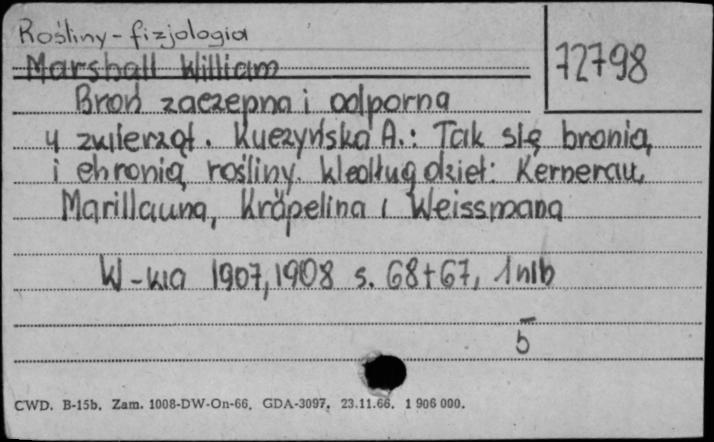 Rośliny - fizjologia
72798
Marshall William
Broń zaczepna i odporna
u zwierząt. Kuczyńska A.: Tak się bronią
i chronią rośliny. Według dzieł: Kernerau,
Marillauna, Kräpelina i Weissmana
W-wa 1907, 1908 s. 68+67, 1 nlb
5
CWD. B-15b. Zam. 1008-DW-On-66. GDA-3097. 23.11.66. 1 906 000.